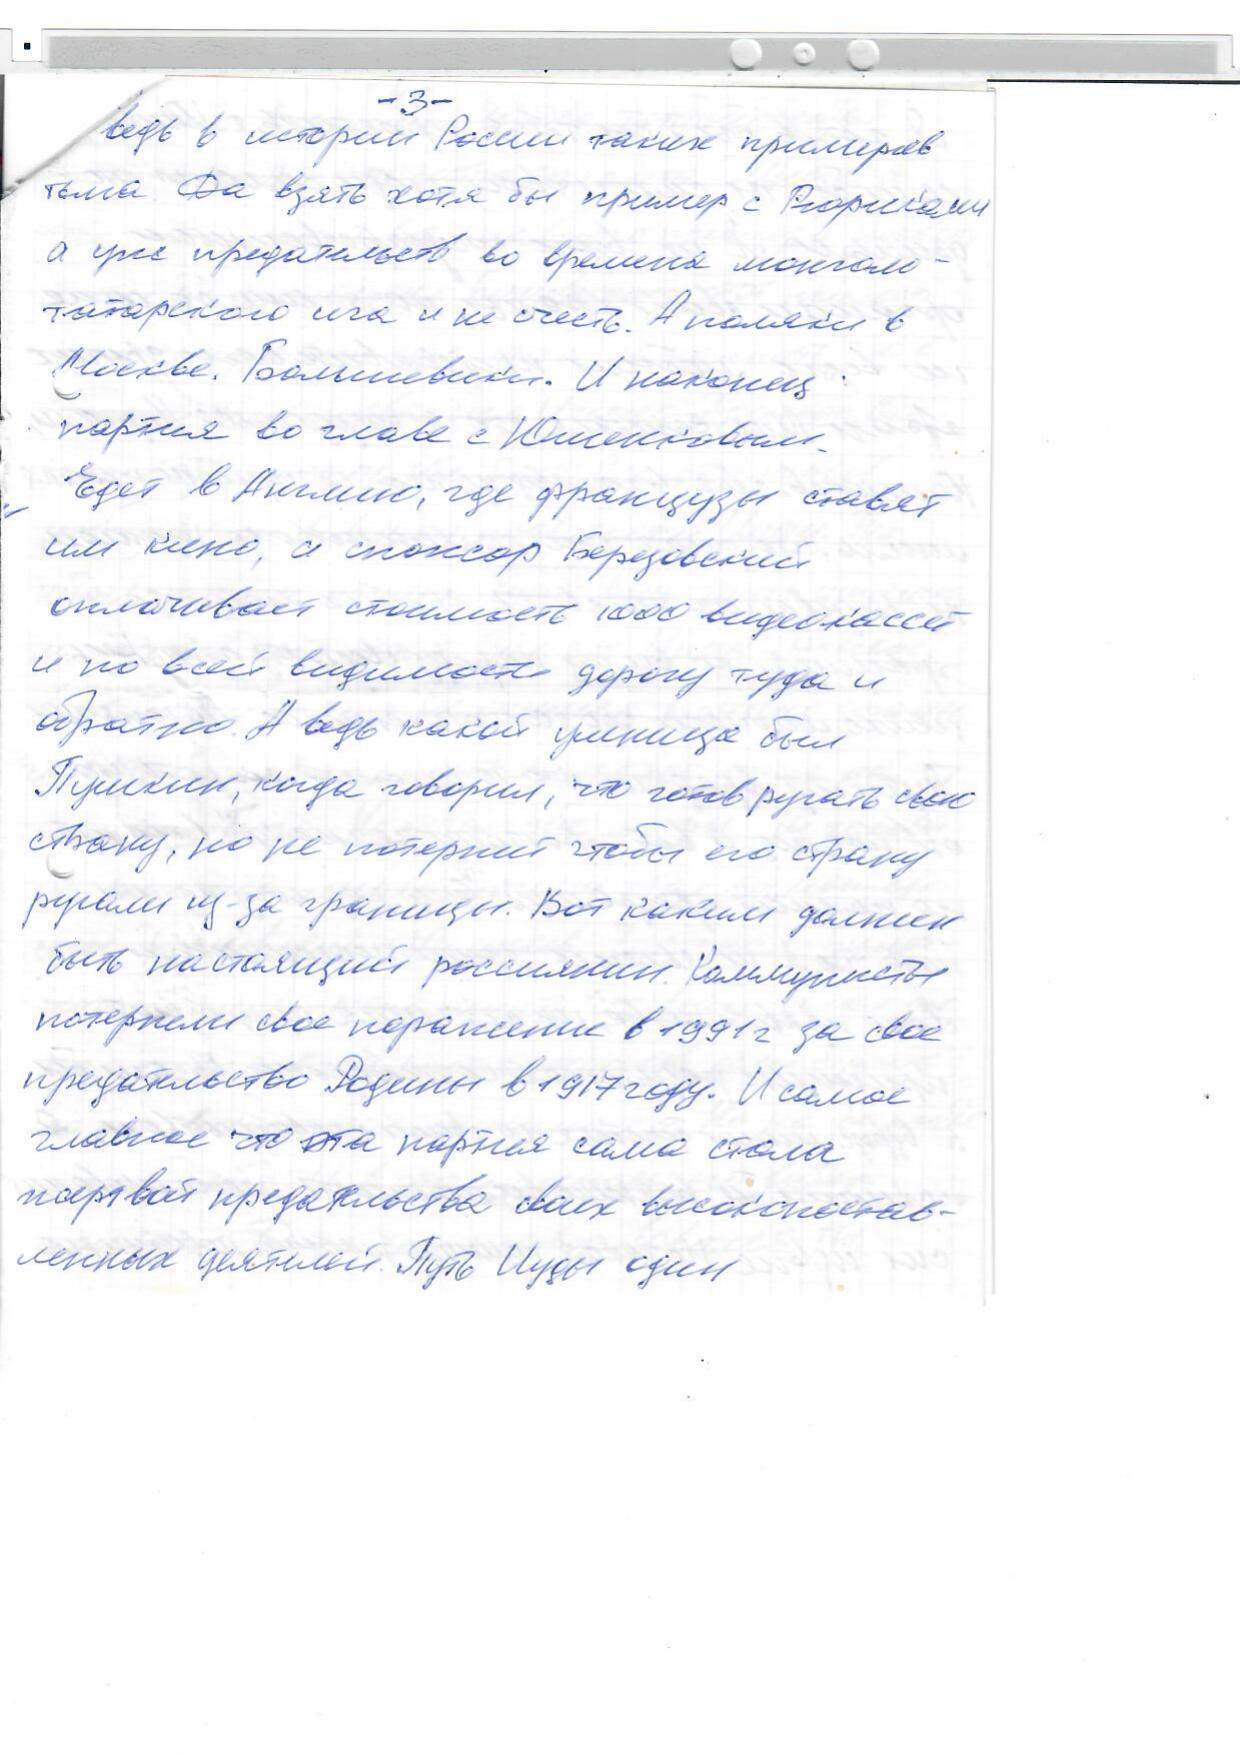 -3-
ведь в истории России таких примеров
тьма. Да взять хотя бы пример с Рюриками
а уже предательств во времена монголо-
татарского ига и не счесть. А поляки в
Москве. Большевики. И наконец
партия во главе с Юшенковым.
Едет в Англию, где французы ставят
им кино, а спонсор Березовский
оплачивает стоимость 1000 видеокассет
и по всей видимости дорогу туда и
обратно. А ведь какой умница был
Пушкин, когда говорил, что готов ругать свою
страну, но не потерпит чтобы его страну
ругали из-за границы. Вот каким должен
быть настоящий россиянин. Коммунисты
потерпели свое поражение в 1991г за свое
предательство Родины в 1917 году. И самое
главное что эта партия сама стала
жертвой предательства своих высокопостав-
ленных деятелей. Путь Иуды один